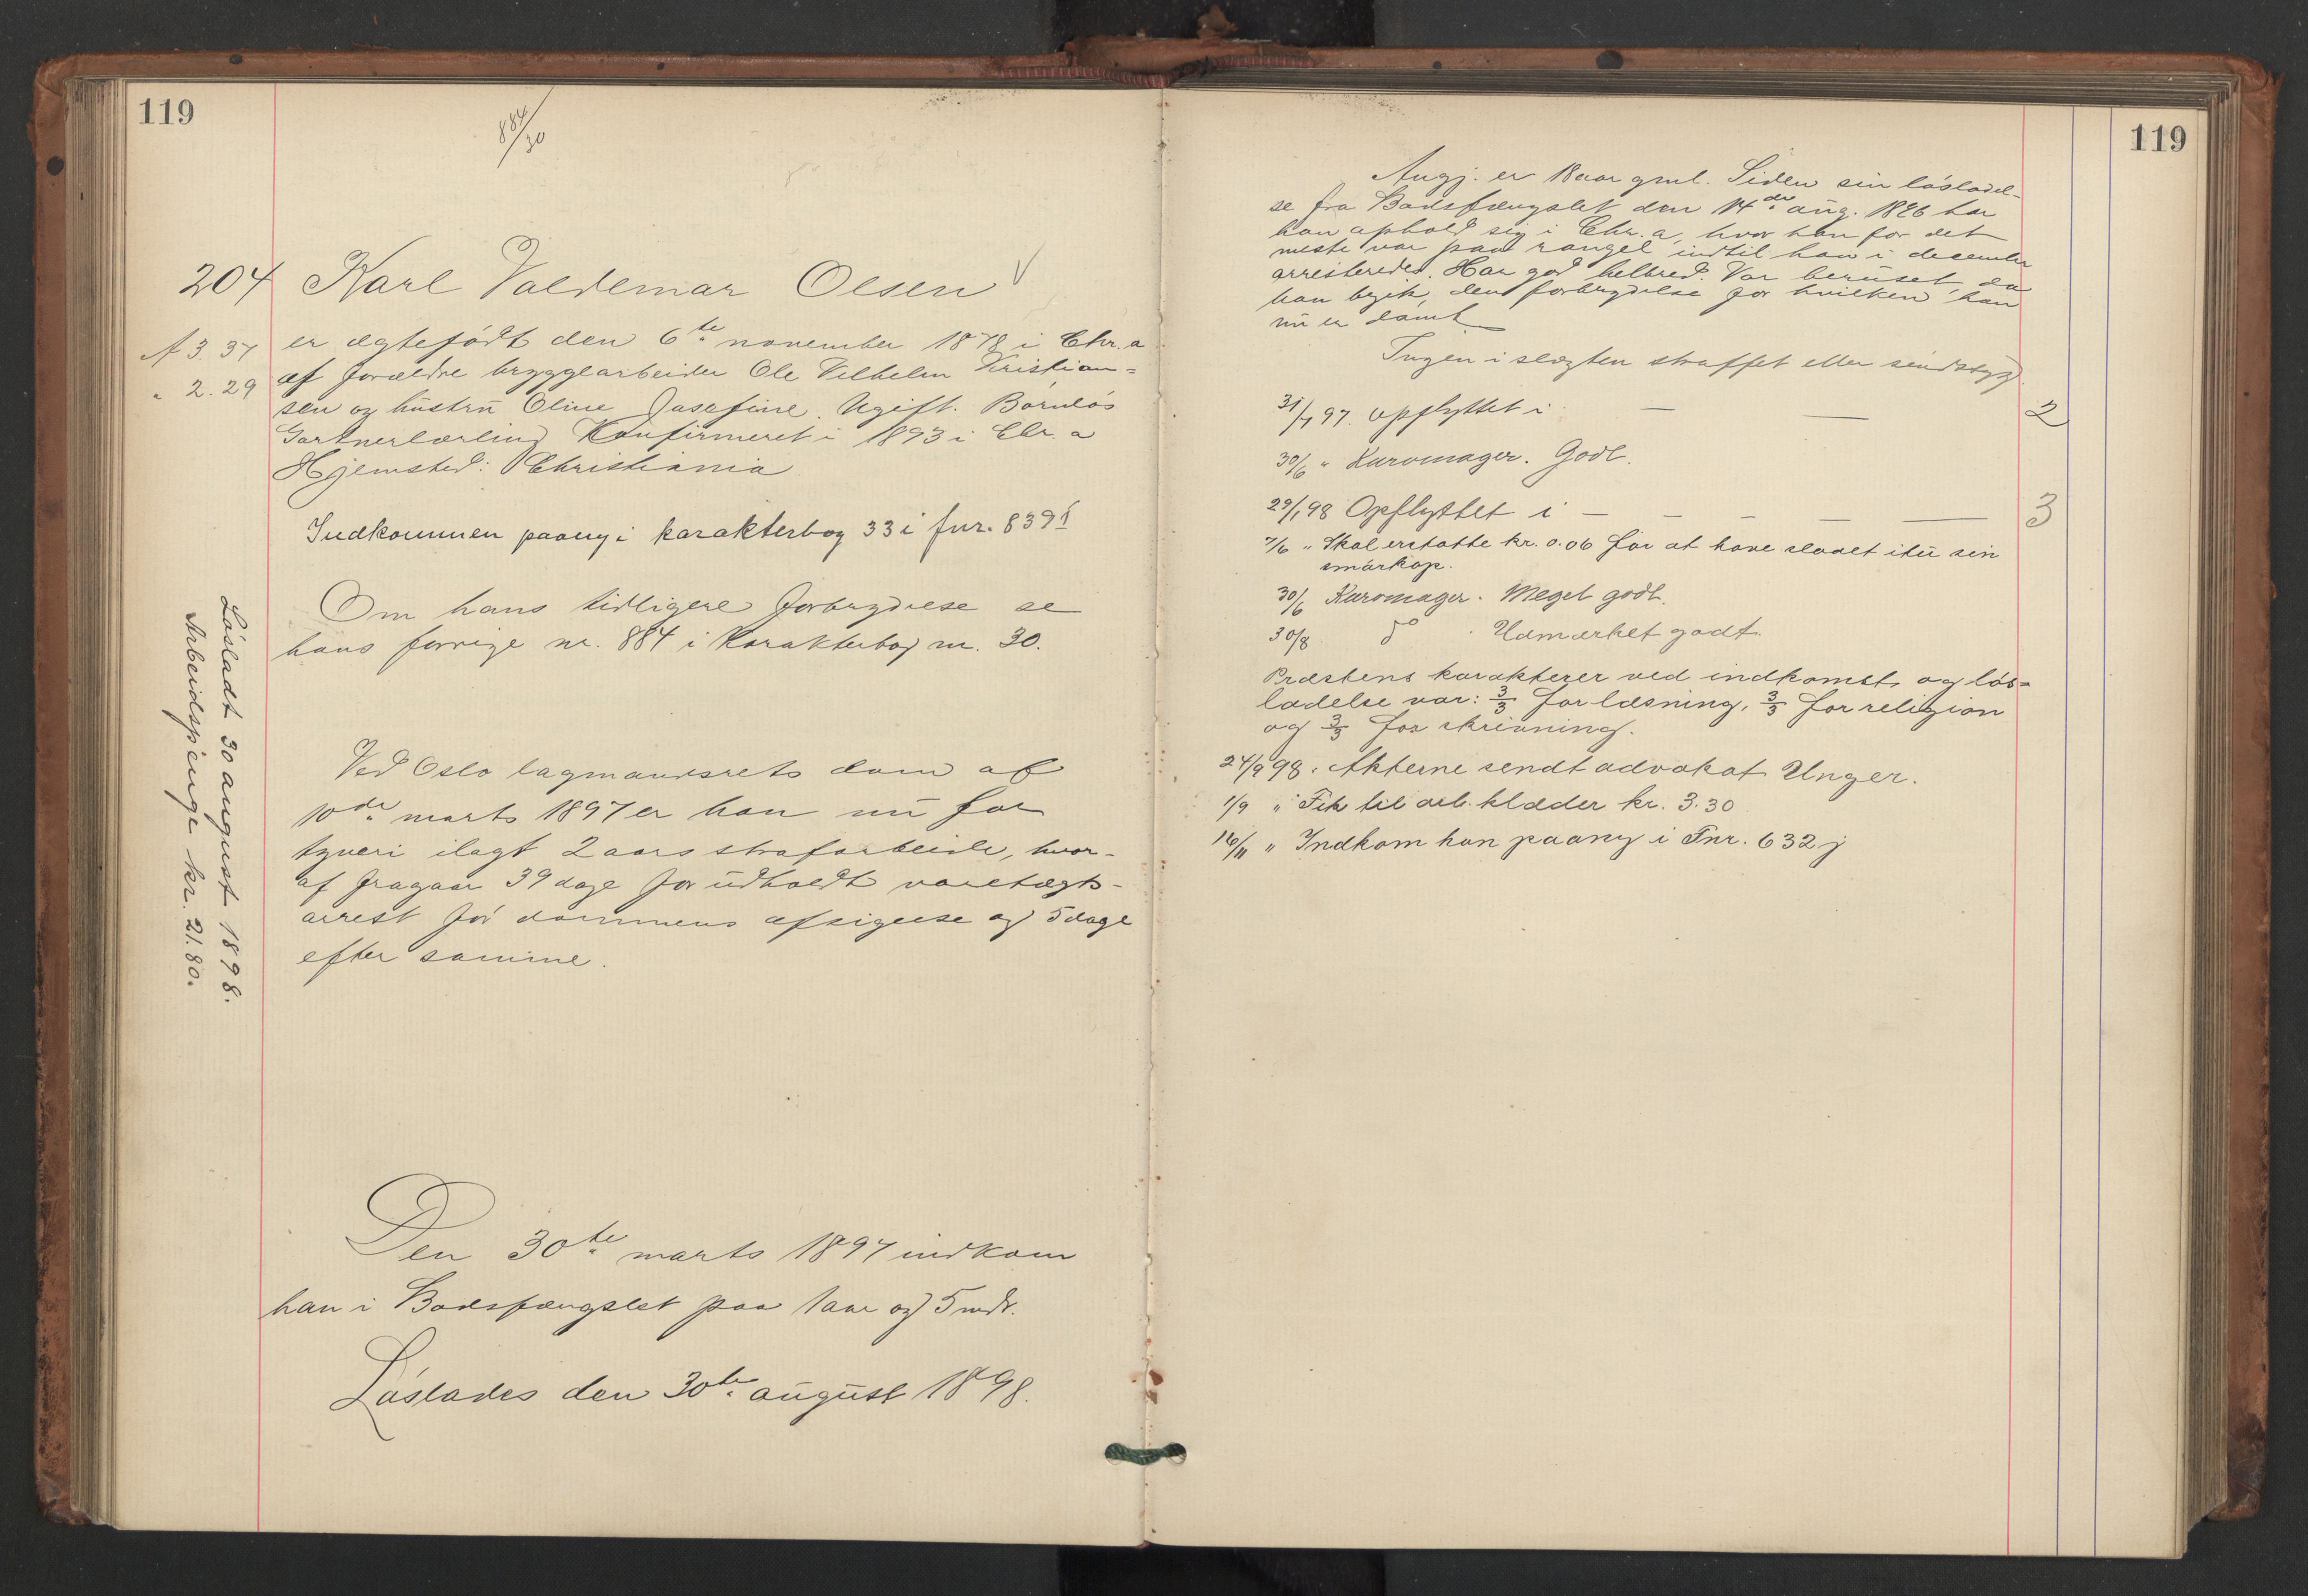 119
884/30
204 Karl Valdemar Olsen V
A 3.37
" 2.29
er ægtefødt den 6te november 1878 i Chr.a
af forældre bryggearbeider Ole Vilhelm Kristian=
sen og hustru Oline Josefine. Ugift. Barnløs
Gartnerlærling Konfirmeret i 1893 i Chr.a
Hjemsted: Christiania
Indkommen paany i karakterbog 33 i fnr. 839 I
Om hans tidligere forbrydelse se
hans forrige nr. 884 i Karakterbog nr. 30.
Løsladt 30 august 1898.
Arbeidspenge kr. 21.80.
Ved Oslo lagmandsrets dom af
10de marts 1897 er han nu for
tyveri ilagt 2 aars strafarbeide, hvor-
af fragaar 39 dage for udholdt varetægts-
arrest før dommens afsigelse og 5 dage
efter samme.
Den 30te marts 1897 indkom
han i Bodsfængslet paa 1 aar og 5 mdr.
Løslades den 30te august 1898.
119
Angj. er 18 aar gml. Siden sin løsladel-
se fra Bodsfængslet den 14de aug. 1896 har
han ophold sig i Chr.a, hvor han for det
meste var paa rangel indtil han i december
arresteredes. Har god helbred. Var beruset, da
han begik den forbrydelse for hvilken han
nu er dømt
Ingen i slægten straffet eller sindssyg.
31/7 97. Opflyttet i — — 2
30/6 " Kurvmager. Godt.
29/1 98 Opflyttet i — — — — — 3
7/6 " Skal erstatte kr. 0.06 for at have slaaet itu sin
smørkop.
30/6 Kurvmager. Meget godt.
30/8 do . Udmærket godt.
Præstens karakterer ved indkomst og løs=
ladelse var: 3/3 for læsning, 3/3 for religion
og 3/3 for skrivning.
24/9 98. Akterne sendt advokat Unger.
1/9 " Fik til arb. klæder kr. 3.30
16/11 " Indkom han paany i Fnr. 632 j